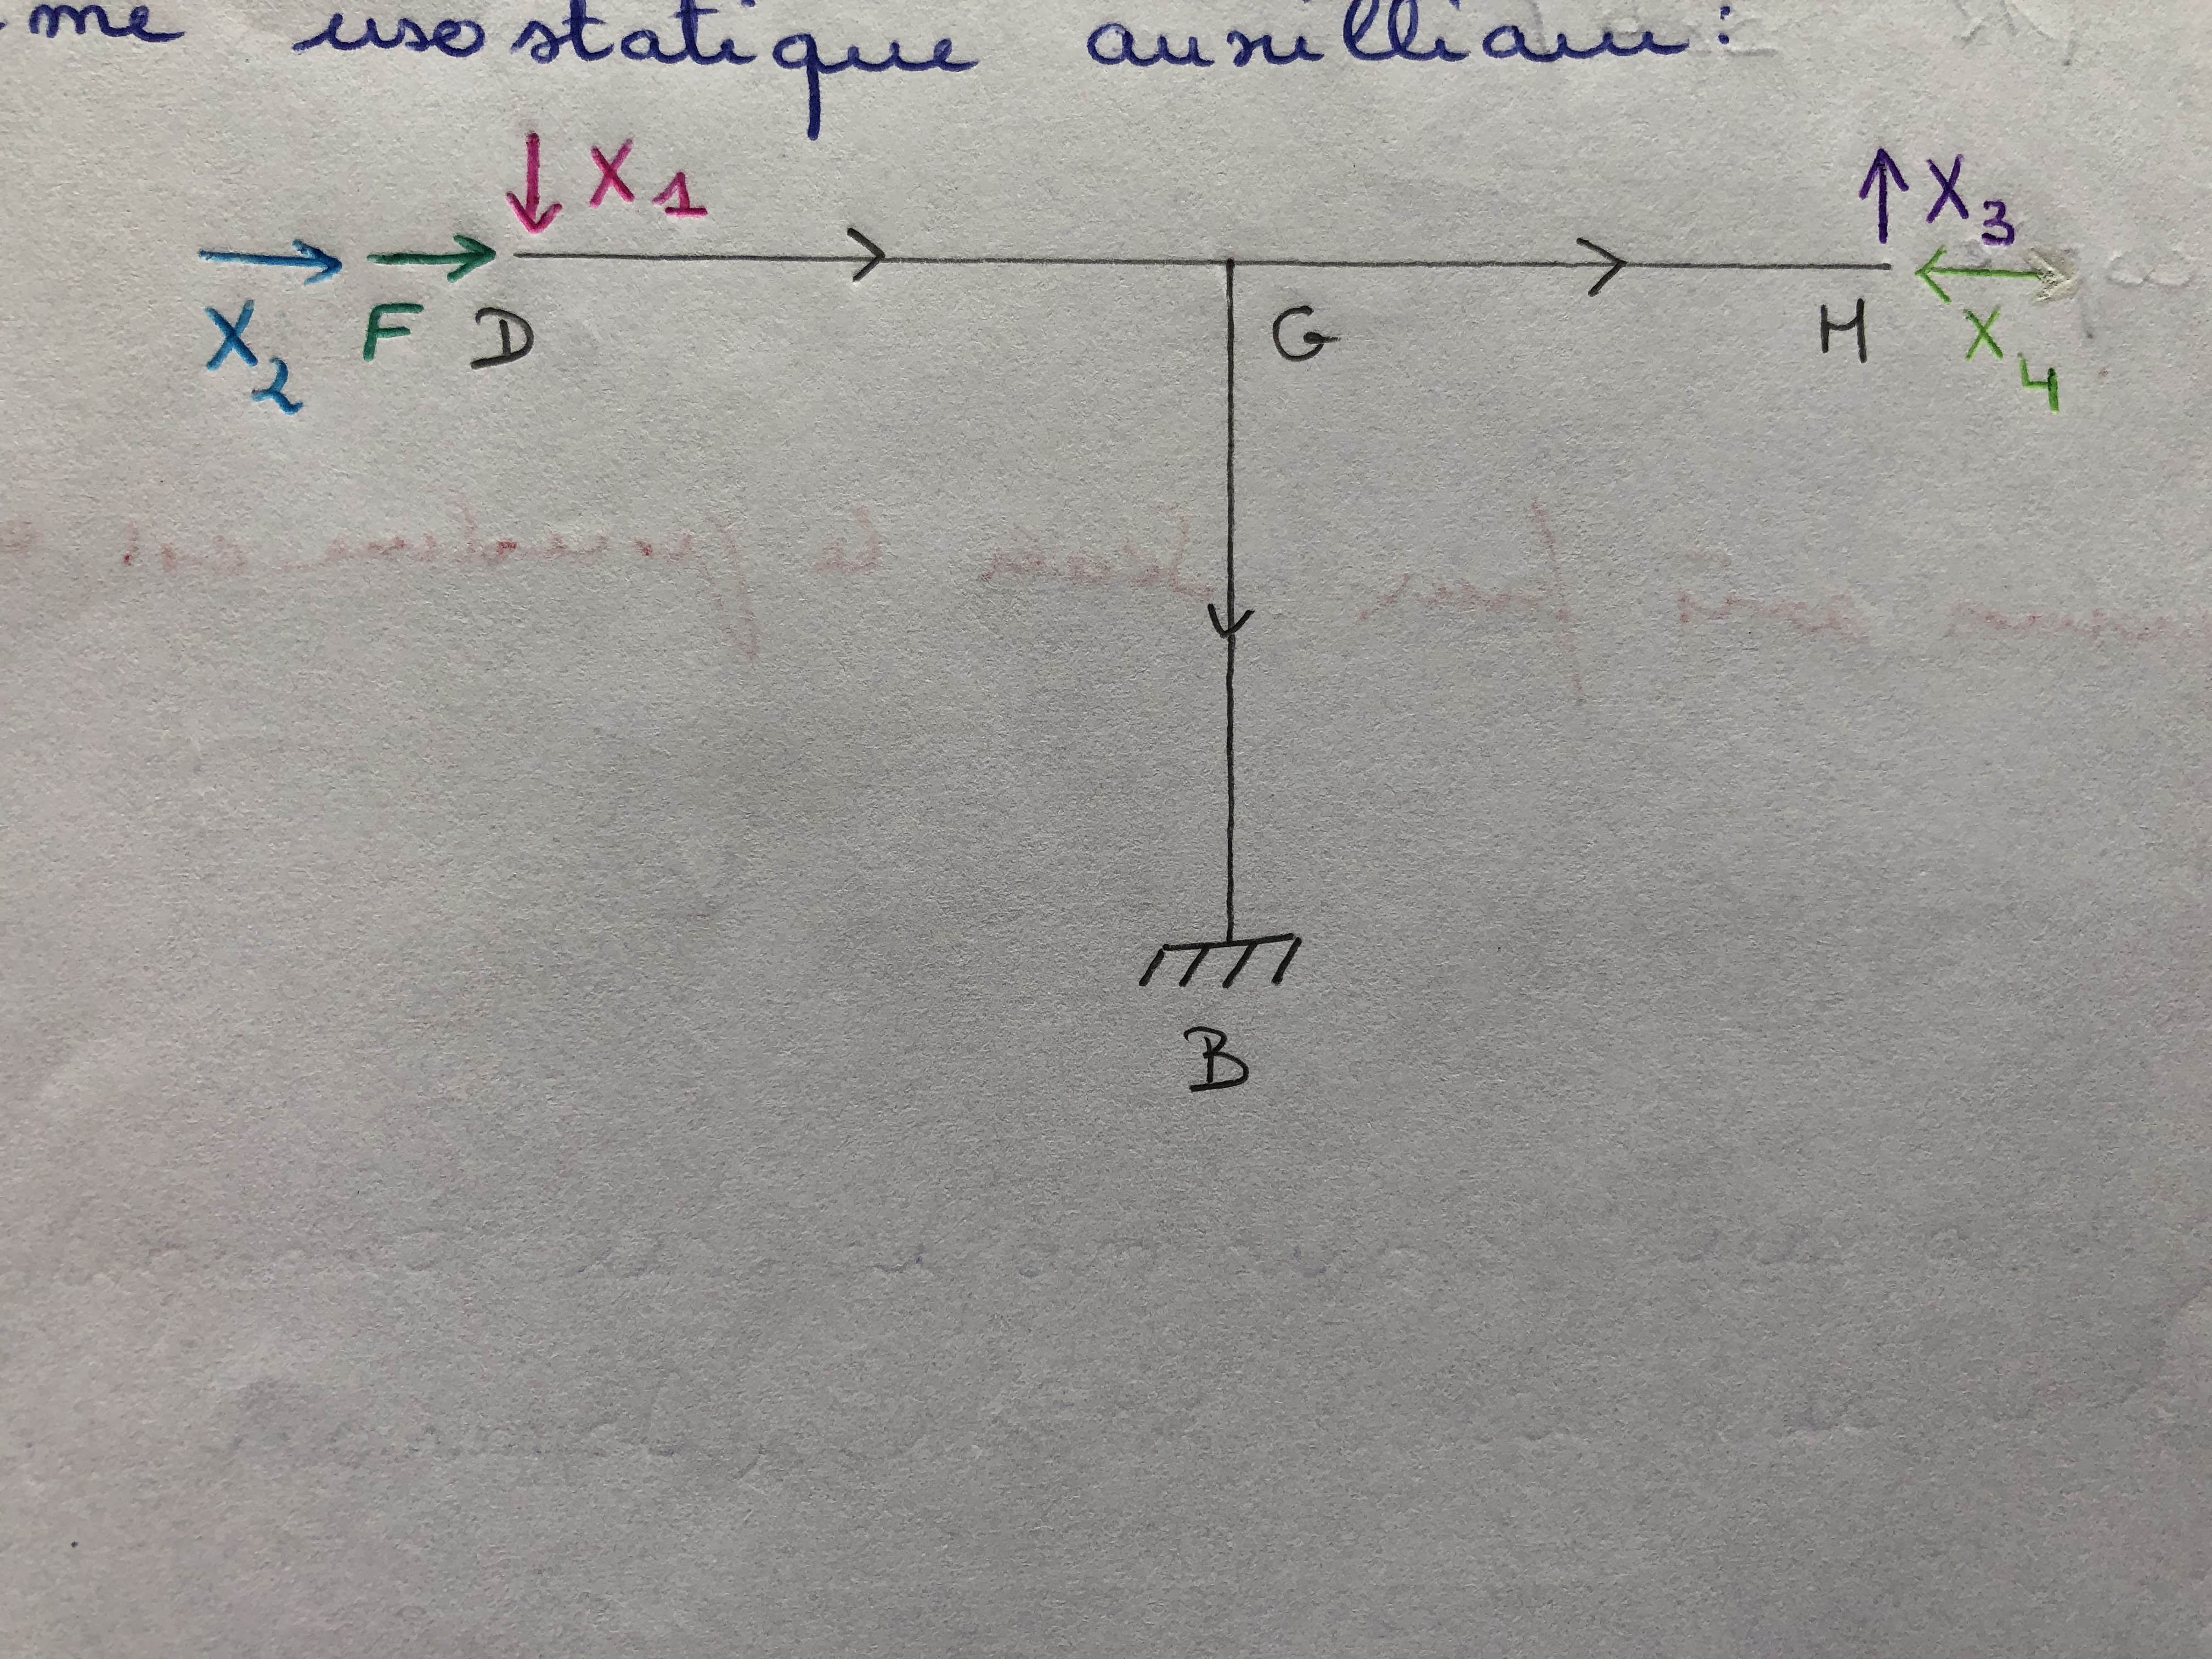 me isostatique auxilliaire :
X1
X3
X2
F
D
G
H
X4
B